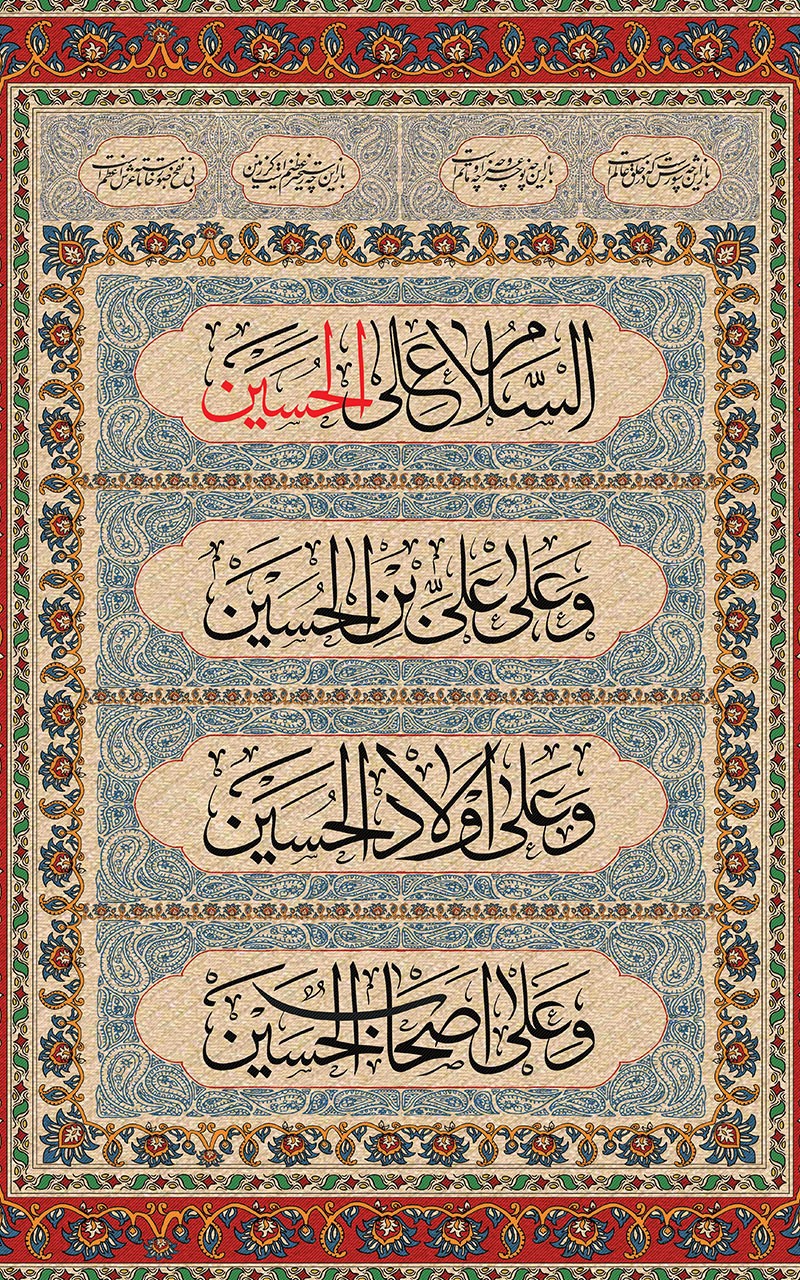 باز این چه شورش است که در خلق عالم است
باز این چه نوحه و چه عزا و چه ماتم است
باز این چه رستخیز عظیم است کز زمین
بی نفخ صور خاسته تا عرش اعظم است
السلام علی الحسین
وَعَلی عَلیِّ بْنِ الحُسَین
وَعَلی اَولادِ الحُسَین
وَعَلی اَصحابِ الحُسَین